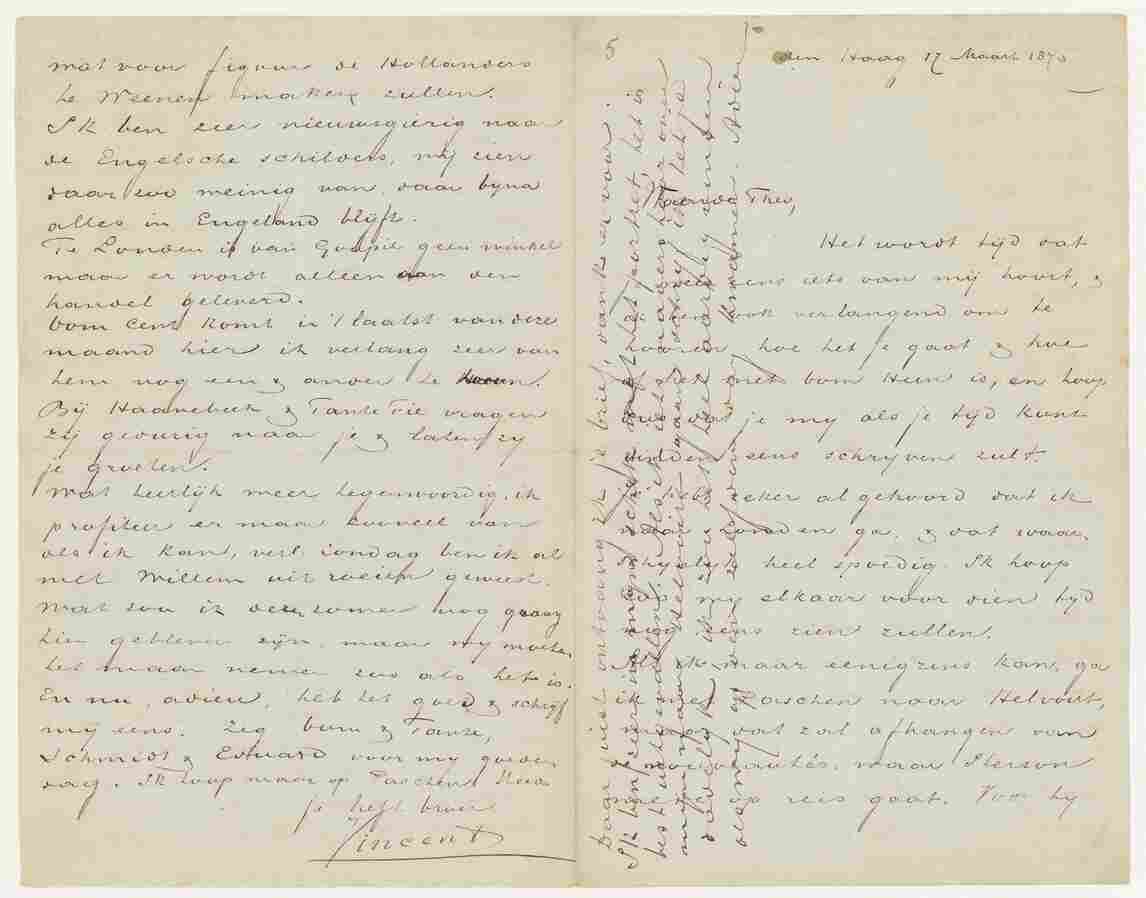 wat voor figuur de Hollanders
te Weenen maken zullen.
Ik ben zeer nieuwsgierig naar
de Engelsche schilders, wij zien
daar zoo weinig van, daar byna
alles in Engeland blijft.
Te Londen is van Goupil geen winkel
maar er wordt alleen aan den
handel geleverd.
Oom Cent komt in 't laatst van deze
maand hier ik verlang zeer van
hem nog een & ander te hooren.
Bij Haanebeek & Tante Fie vragen
zij gedurig naar je & laten zy
je groeten.
Wat heerlijk weer tegenwoordig, ik
profiteer er maar zooveel van
als ik kan, verl. zondag ben ik al
met Willem uit roeien geweest.
Wat zou ik dezen zomer nog graag
hier gebleven zijn, maar wy moeten
het maar nemen zoo als het is.
En nu, adieu, heb het goed & schrijf
mij eens. Zeg Oom & Tante,
Schmidt & Eduard voor my goeden
dag. Ik hoop maar op Paschen. Steeds
je liefh broer
Vincent
5
den Haag 17 Maart 1873
Waarde Theo,
Het wordt tijd dat
je weer eens iets van mij hoort, &
ik ben ook verlangend om te
hooren, hoe het je gaat & hoe
of het met Oom Hein is, en hoop
dus dat je my als je tyd kunt
vinden eens schryven zult.
Je hebt zeker al gehoord dat ik
naar Londen ga, & dat waar-
schynlyk heel spoedig. Ik hoop
dat wy elkaar voor dien tyd
nog eens zien zullen.
Als ik maar eenigzins kan, ga
ik met Paschen naar Helvoirt,
maar dat zal afhangen van
de nouveautés, waar Iterson
mede op reis gaat. Voor hy
Daar juist ontvang ik je brief, dank er voor.
Ik ben zeer in mijn schik met het portret, het is
best uitgevallen. Als ik iets naders hoor over
mijn naar Helvoirt gaan dan schryf ik het je
dadelyk, ik zou het heel aardig vinden
als wy op denzelfden dag kwamen. Adieu